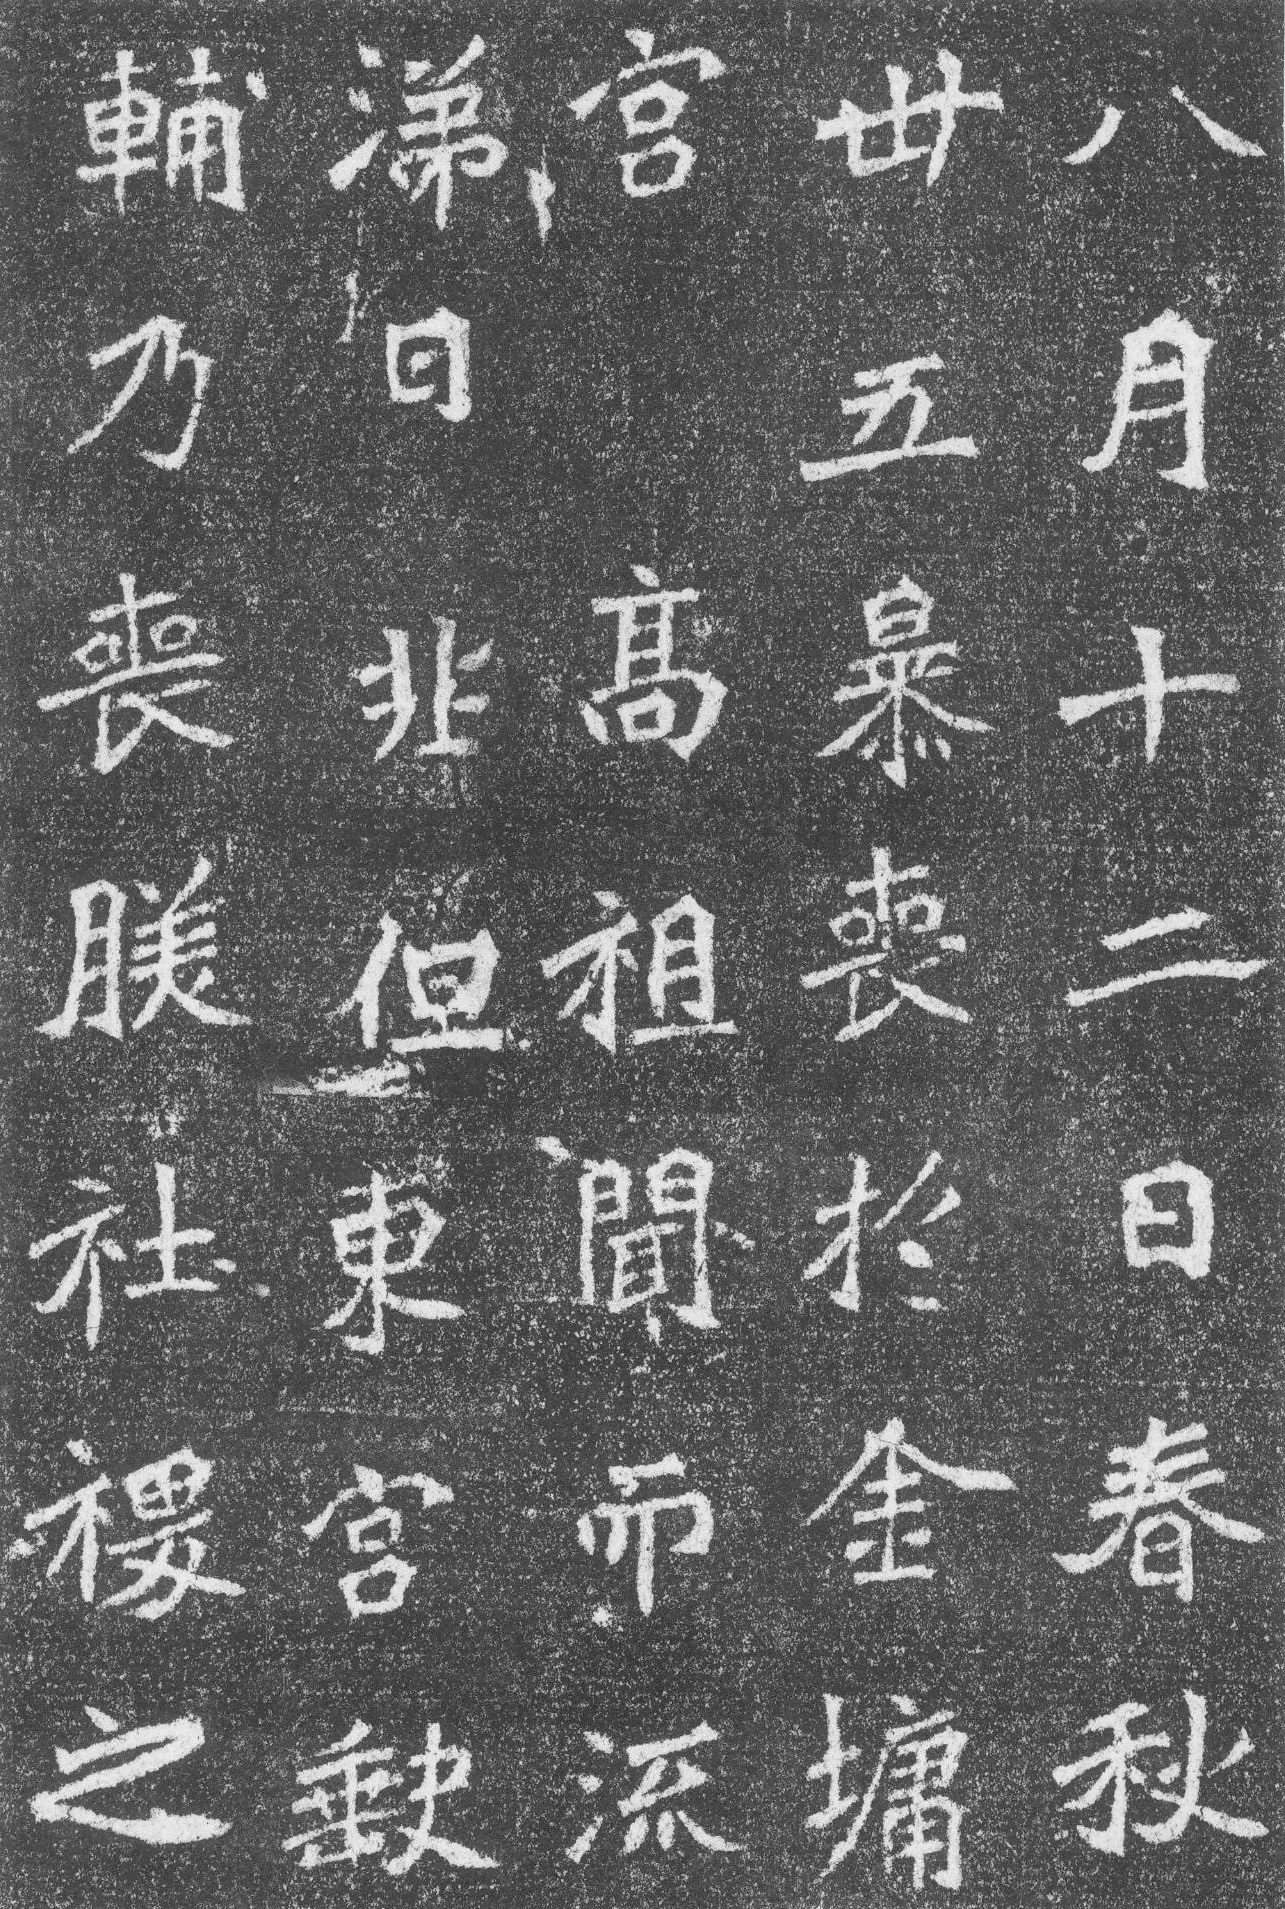 八月十二日春秋
卅五暴喪於金墉
宮高祖聞而流
涕曰非但東宮缺
輔乃喪朕社稷之